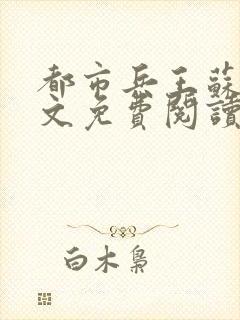 都市兵王蘇
文免費閱讀
白木梟